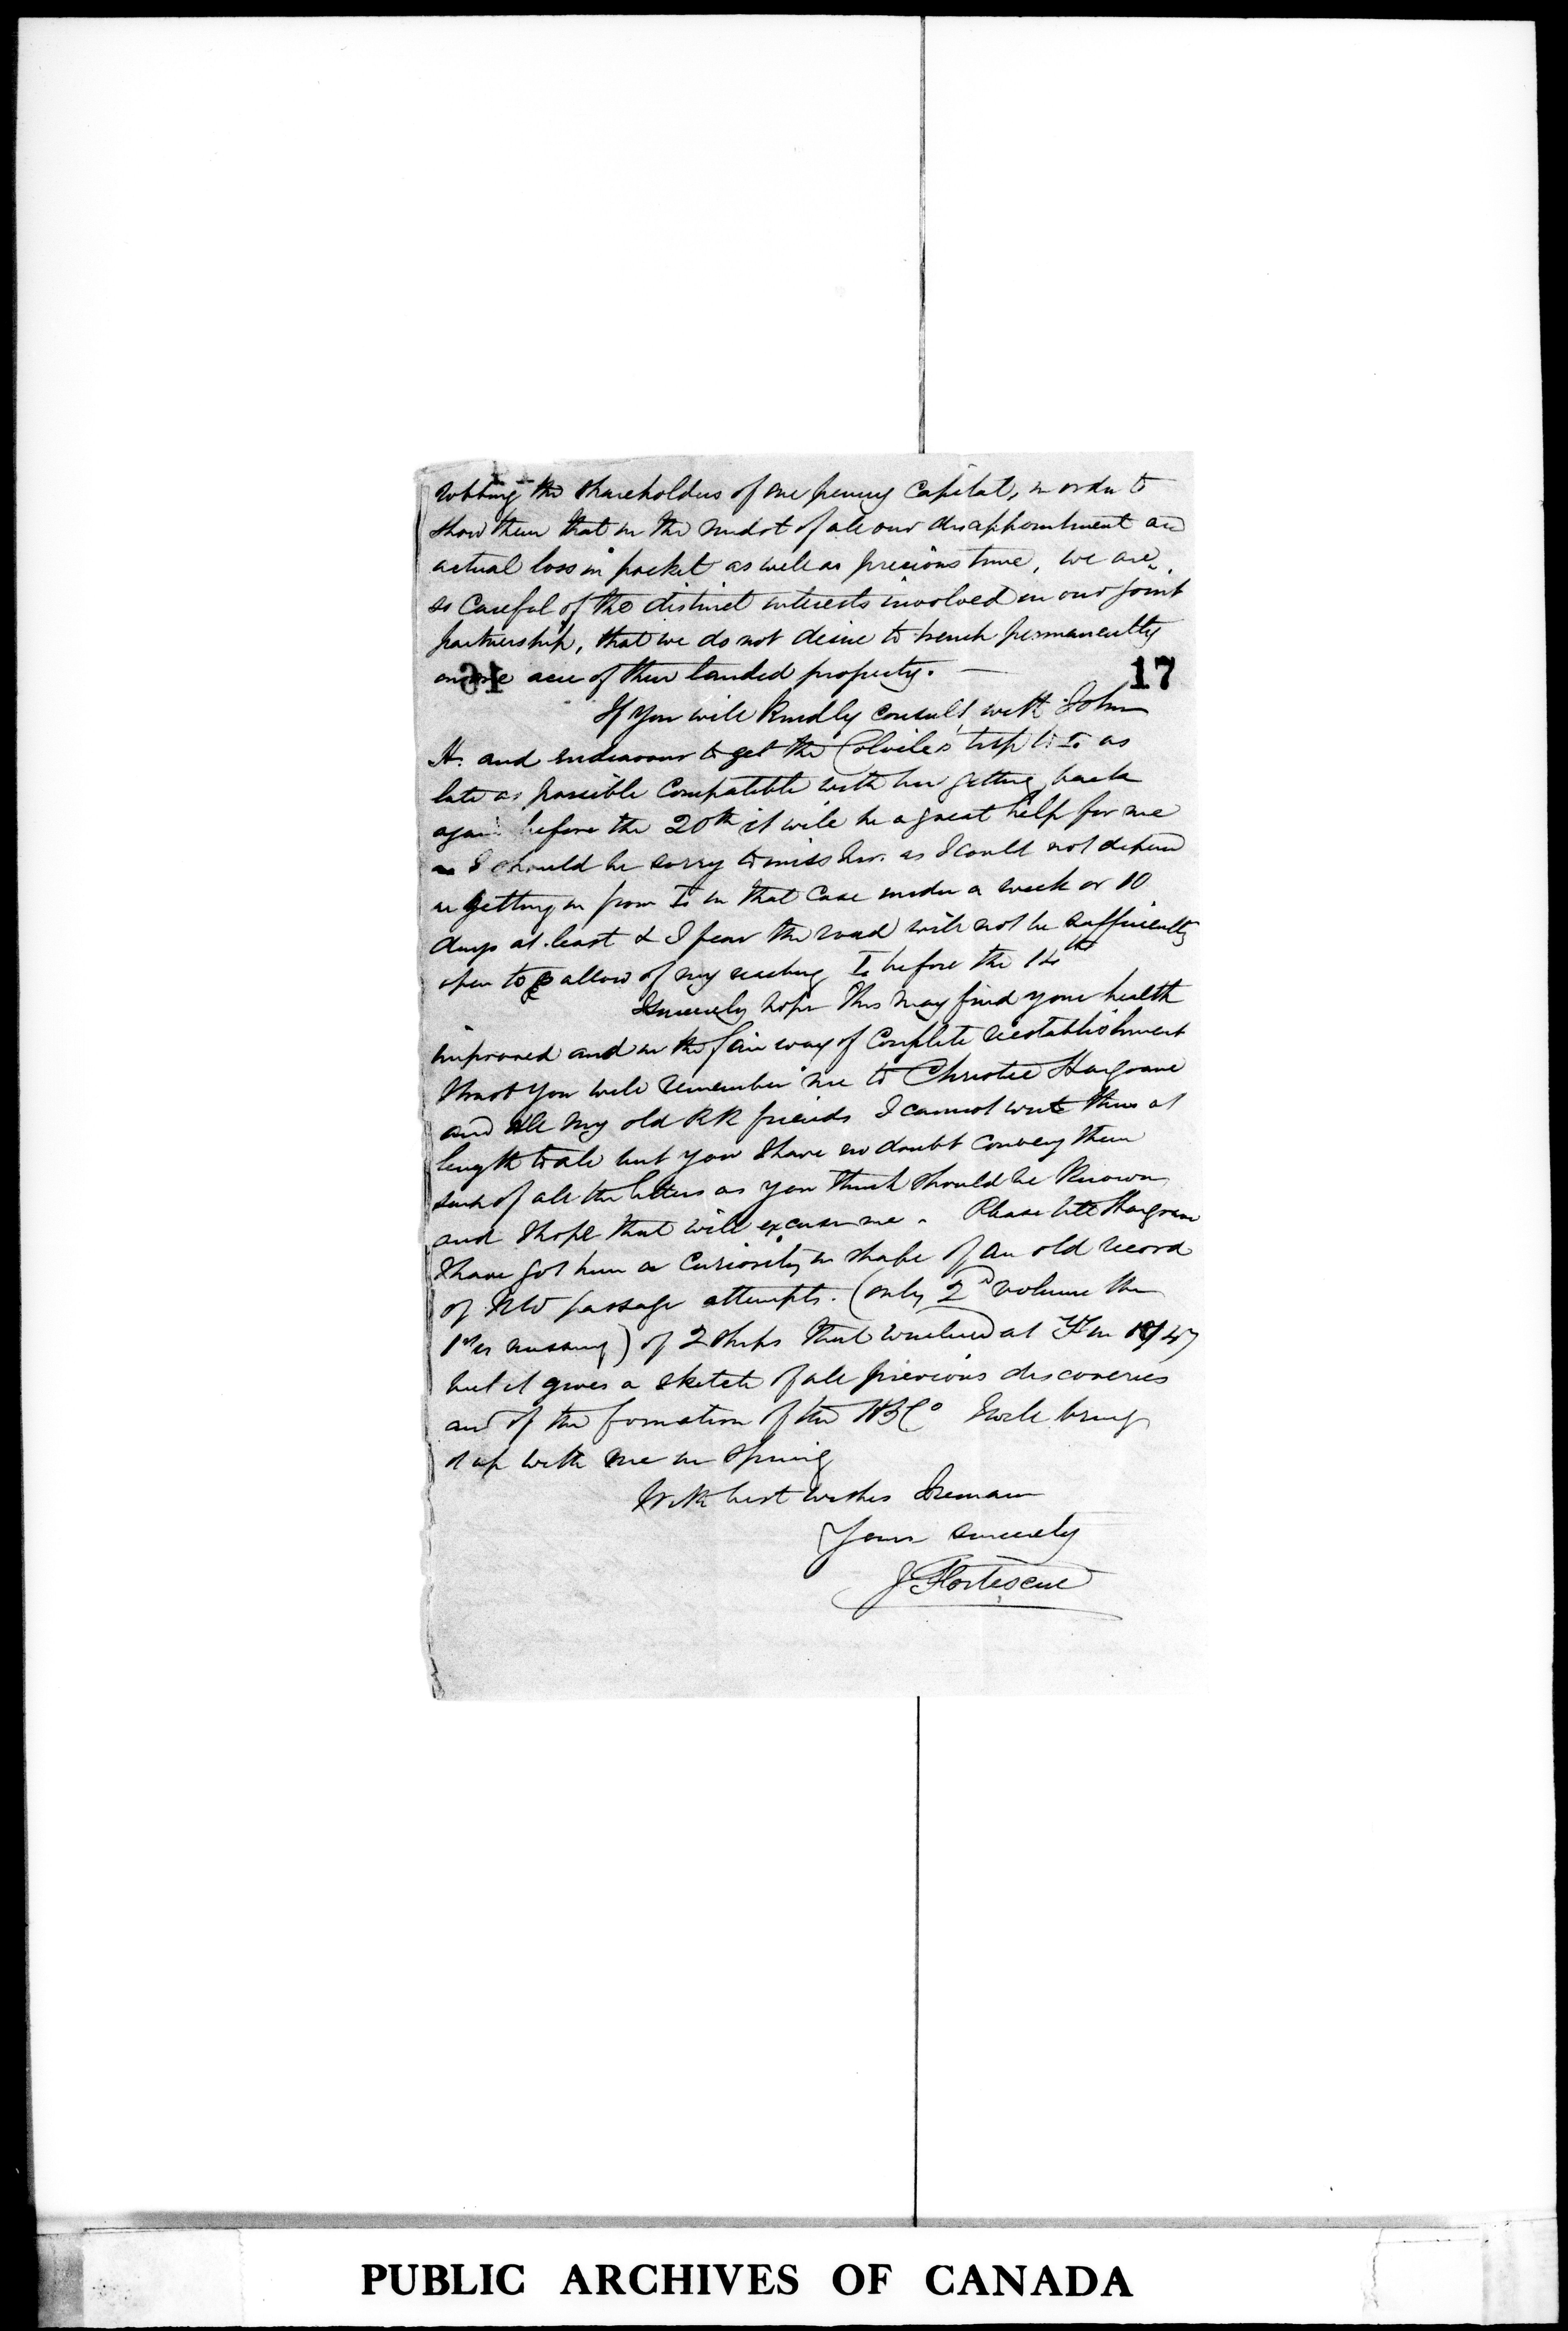 robbing the shareholders of one penny Capital, in order to
show them that in the midst of all our disappointment and
actual loss in pocket as well as precious time, we are
so Careful of the distinct interests involved in our joint
partnership, that we do not desire to trench permanently
on one acre of their landed property. —
17
If you will kindly consult with John
H. and endeavour to get the Colvile's trip to as
late as possible Compatible with her getting back
again before the 20th it will be a great help for me
as I should be sorry to miss her. as I could not depend
on getting on from in that Case under a week or 10
days at least & I fear the road will not be sufficiently
open to allow of my reaching before the 14th
I sincerely hope this may find your health
improved and in the fair way of Complete reestablishment
Trust you will remember me to Christie Hargrave
and all my old RR friends I cannot write thus at
length to all but you I have no doubt convey them
such of all the letters as you think should be known
and I hope that will excuse me. Please tell Hargrave
I have got him a Curiosity in shape of an old record
of NW passage attempts. (only 2d volume the
1st is missing) of 2 ships that wintered at YF in 47
but it gives a sketch of all previous discoveries
and of the formation of the HBCo I will bring
it up with me in Spring
With best wishes I remain
Yours sincerely
J Fortescue
PUBLIC ARCHIVES OF CANADA